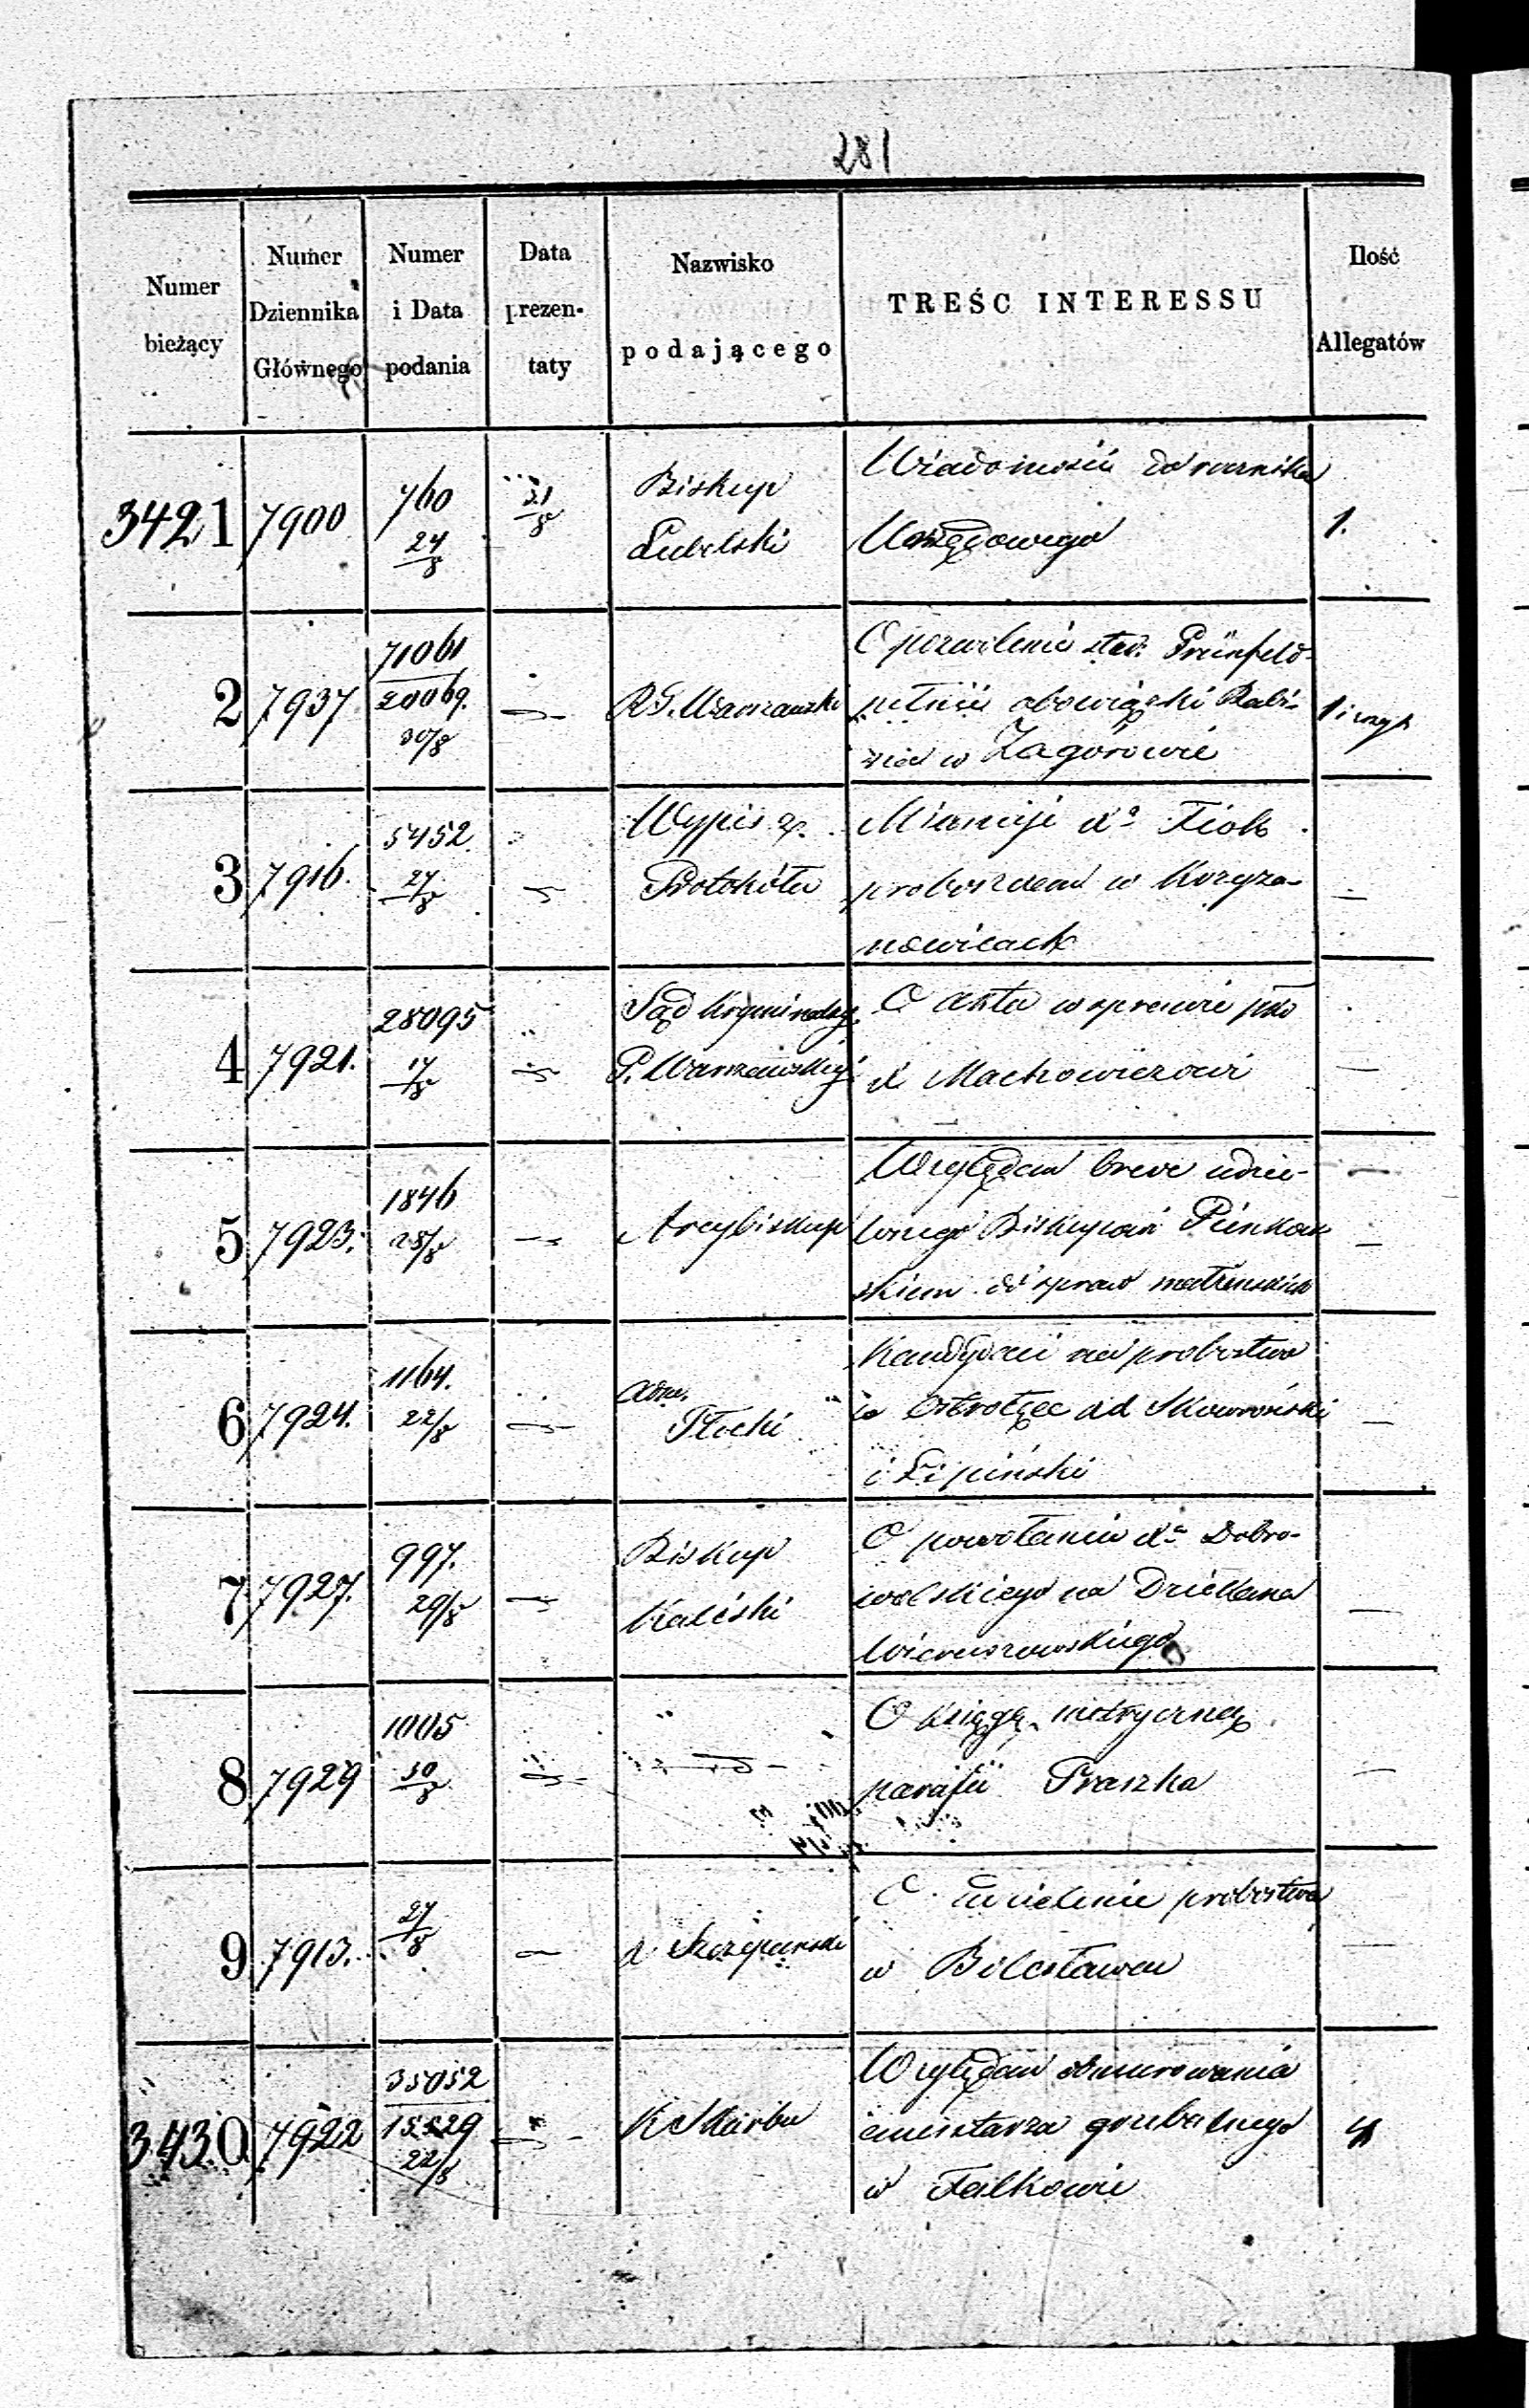 281
Numer bieżący
Numer Dziennika Głównego
Numer i Data podania
Data prezen- taty
Nazwisko podającego
TREŚC INTERESSU
Ilość Allegatów
3421 7900 760 24/8 31/8 Biskup Lubelski
Wiadomości do
Urzędowego
1.
2 7937 71061 20069. 30/8 R. G. Warszawski
O pozwolenie star: Grünfeld
pełnić obowiązki Rabi-
na w Zagórowie
3 7916. 5452 27/8 Wypis z Protokółu
Nominacji Xa Fiok
proboszczem w Krzyża-
nowicach
4 7921. 28095 17/8 Sąd Kryminalny G. Warszawskiej
O akta w sprawie pko
X Machowiczowi
5 7923. 1846 28/8 Arcybiskup
Względem breve udzie-
lonego Biskupowi
do spraw małżeńskich
6 7924. 1164. 22/8 Adm. Płocki
Kandydaci na probostwo
Skowroński
i Lipiński
7 7927. 997. 29/8 Biskup Kaliski
O powołaniu Xa Dobro-
wolskiego na Dziekana
Wieruszowskiego
8 7929 1005 30/8
O księgę metryczną
parafii Praszka
9 7913. 27/8 X Szczepański
O udzielenie probostwa
w Bolesławcu
3430 7922 35052 15529 22/8 K Skarbu
Względem obmurowania
cmentarza grzebalnego
w Falkowie
4